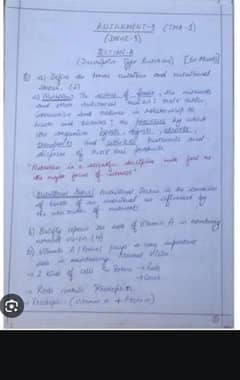 ASSIGNMENT-1 (TMA-1)
(DNHE-1)
SECTION-A
(Descriptive Type Questions) [50 Marks]
1) a) Define the terms nutrition and nutritional
status. (2)
a) Nutrition: The science of foods, the nutrients
and other substances
interaction and balance in relationship to
health and disease; the processes by which
the organism ingests, digests, absorbs,
transports and nutrients and
disposes of their end products.
"Nutrition is a scientific discipline with food as
the major point of interest"
Nutritional Status: Nutritional Status is the condition
of health of an individual as influenced by
the utilization of nutrients.
b) Briefly explain the role of Vitamin A in maintaining
normal vision (4)
b) Vitamin A / Retinol plays a very important
role in maintaining normal vision.
→ 2 kind of cells in Retina → Rods
→ Cones
→ Rods contain Rhodopsin
→ Rhodopsin (vitamin A + Protein)